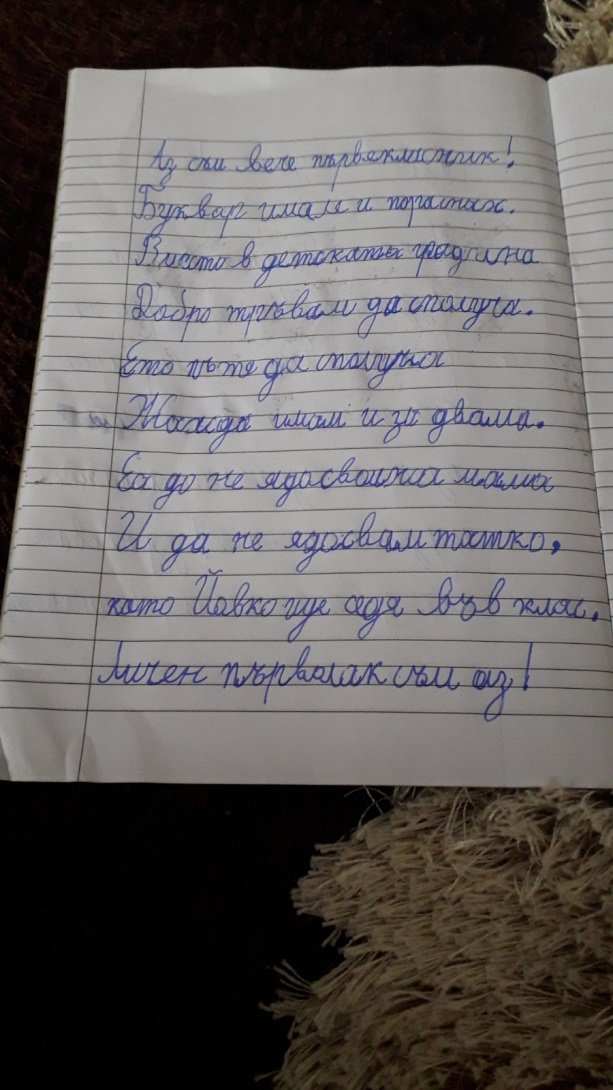 Аз съм вече първокласник!
Буквар имам и пораснах.
Вместо в детската градина
Добро тръгвам да сполуча.
Ето пътя да сполуча
Жажда имам и за двама.
За да не ядосвам мама
И да не ядосвам татко,
като Йовко ще седя във клас.
Личен първолак съм аз!